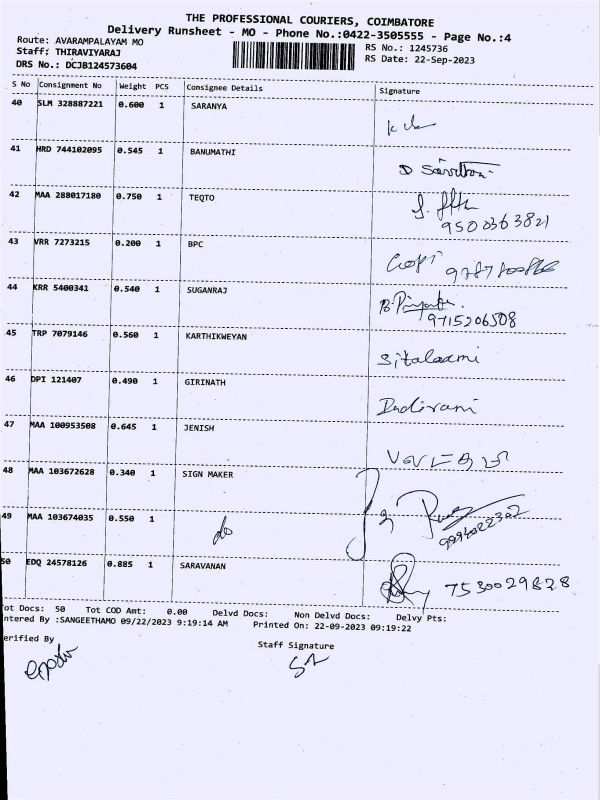 THE PROFESSIONAL COURIERS, COIMBATORE
Delivery Runsheet - MO - Phone No.:0422-3505555 - Page No.:4
Route: AVARAMPALAYAM MO
RS No.: 1245736
Staff: THIRAVIYARAJ
RS Date: 22-Sep-2023
DRS No.: DCJB124573604
S No Consignment No Weight PCS Consignee Details Signature
40 SLM 328887221 0.600 1 SARANYA
41 HRD 744102095 0.545 1 BANUMATHI
42 MAA 288017180 0.750 1 TEQTO
9500363821
43 VRR 7273215 0.200 1 BPC Gopi
44 KRR 5400341 0.540 1 SUGANRAJ
9715206508
45 TRP 7079146 0.560 1 KARTHIKWEYAN Sitalaxmi
46 DPI 121407 0.490 1 GIRINATH Indirani
47 MAA 100953508 0.645 1 JENISH
48 MAA 103672628 0.340 1 SIGN MAKER
49 MAA 103674035 0.550 1 do
50 EDQ 24578126 0.885 1 SARAVANAN 7530029828
Tot Docs: 50 Tot COD Amt: 0.00 Delvd Docs: Non Delvd Docs: Delvy Pts:
ntered By :SANGEETHAMO 09/22/2023 9:19:14 AM Printed On: 22-09-2023 09:19:22
erified By Staff Signature